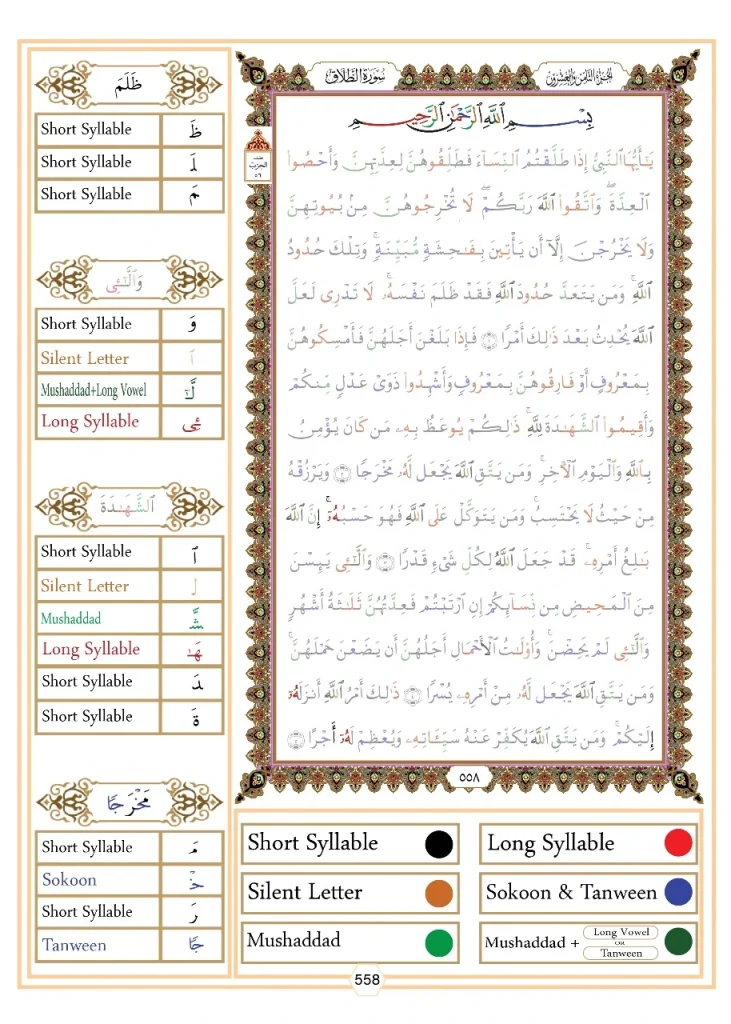 ظَلَمَ
Short Syllable ظَ
Short Syllable لَ
Short Syllable مَ
وَٱلَّٰٓـِٔي
Short Syllable وَ
Silent Letter ٱ
Mushaddad+Long Vowel لَّٰٓ
Long Syllable ـِٔي
ٱلشَّهَٰدَةَ
Short Syllable ٱ
Silent Letter ل
Mushaddad شَّ
Long Syllable هَٰ
Short Syllable دَ
Short Syllable ةَ
مَخْرَجًا
Short Syllable مَ
Sokoon خْ
Short Syllable رَ
Tanween جًا
سُورَةُ الطَّلَاق
الجزء الثامن والعشرون
الحزب
٥٦
بِسْمِ ٱللَّهِ ٱلرَّحْمَٰنِ ٱلرَّحِيمِ
يَٰٓأَيُّهَا ٱلنَّبِيُّ إِذَا طَلَّقْتُمُ ٱلنِّسَآءَ فَطَلِّقُوهُنَّ لِعِدَّتِهِنَّ وَأَحْصُوا۟
ٱلْعِدَّةَ ۖ وَٱتَّقُوا۟ ٱللَّهَ رَبَّكُمْ ۖ لَا تُخْرِجُوهُنَّ مِنۢ بُيُوتِهِنَّ
وَلَا يَخْرُجْنَ إِلَّآ أَن يَأْتِينَ بِفَٰحِشَةٍ مُّبَيِّنَةٍ ۚ وَتِلْكَ حُدُودُ
ٱللَّهِ ۚ وَمَن يَتَعَدَّ حُدُودَ ٱللَّهِ فَقَدْ ظَلَمَ نَفْسَهُۥ ۚ لَا تَدْرِى لَعَلَّ
ٱللَّهَ يُحْدِثُ بَعْدَ ذَٰلِكَ أَمْرًا ١ فَإِذَا بَلَغْنَ أَجَلَهُنَّ فَأَمْسِكُوهُنَّ
بِمَعْرُوفٍ أَوْ فَارِقُوهُنَّ بِمَعْرُوفٍ وَأَشْهِدُوا۟ ذَوَىْ عَدْلٍ مِّنكُمْ
وَأَقِيمُوا۟ ٱلشَّهَٰدَةَ لِلَّهِ ۚ ذَٰلِكُمْ يُوعَظُ بِهِۦ مَن كَانَ يُؤْمِنُ
بِٱللَّهِ وَٱلْيَوْمِ ٱلْءَاخِرِ ۚ وَمَن يَتَّقِ ٱللَّهَ يَجْعَل لَّهُۥ مَخْرَجًا ٢ وَيَرْزُقْهُ
مِنْ حَيْثُ لَا يَحْتَسِبُ ۚ وَمَن يَتَوَكَّلْ عَلَى ٱللَّهِ فَهُوَ حَسْبُهُۥٓ ۚ إِنَّ ٱللَّهَ
بَٰلِغُ أَمْرِهِۦ ۚ قَدْ جَعَلَ ٱللَّهُ لِكُلِّ شَىْءٍ قَدْرًا ٣ وَٱلَّٰٓـِٔى يَئِسْنَ
مِنَ ٱلْمَحِيضِ مِن نِّسَآئِكُمْ إِنِ ٱرْتَبْتُمْ فَعِدَّتُهُنَّ ثَلَٰثَةُ أَشْهُرٍ
وَٱلَّٰٓـِٔى لَمْ يَحِضْنَ ۚ وَأُو۟لَٰتُ ٱلْأَحْمَالِ أَجَلُهُنَّ أَن يَضَعْنَ حَمْلَهُنَّ ۚ
وَمَن يَتَّقِ ٱللَّهَ يَجْعَل لَّهُۥ مِنْ أَمْرِهِۦ يُسْرًا ٤ ذَٰلِكَ أَمْرُ ٱللَّهِ أَنزَلَهُۥٓ
إِلَيْكُمْ ۚ وَمَن يَتَّقِ ٱللَّهَ يُكَفِّرْ عَنْهُ سَيِّـَٔاتِهِۦ وَيُعْظِمْ لَهُۥٓ أَجْرًا ٥
٥٥٨
Short Syllable
Long Syllable
Silent Letter
Sokoon & Tanween
Mushaddad
Mushaddad + Long Vowel OR Tanween
558